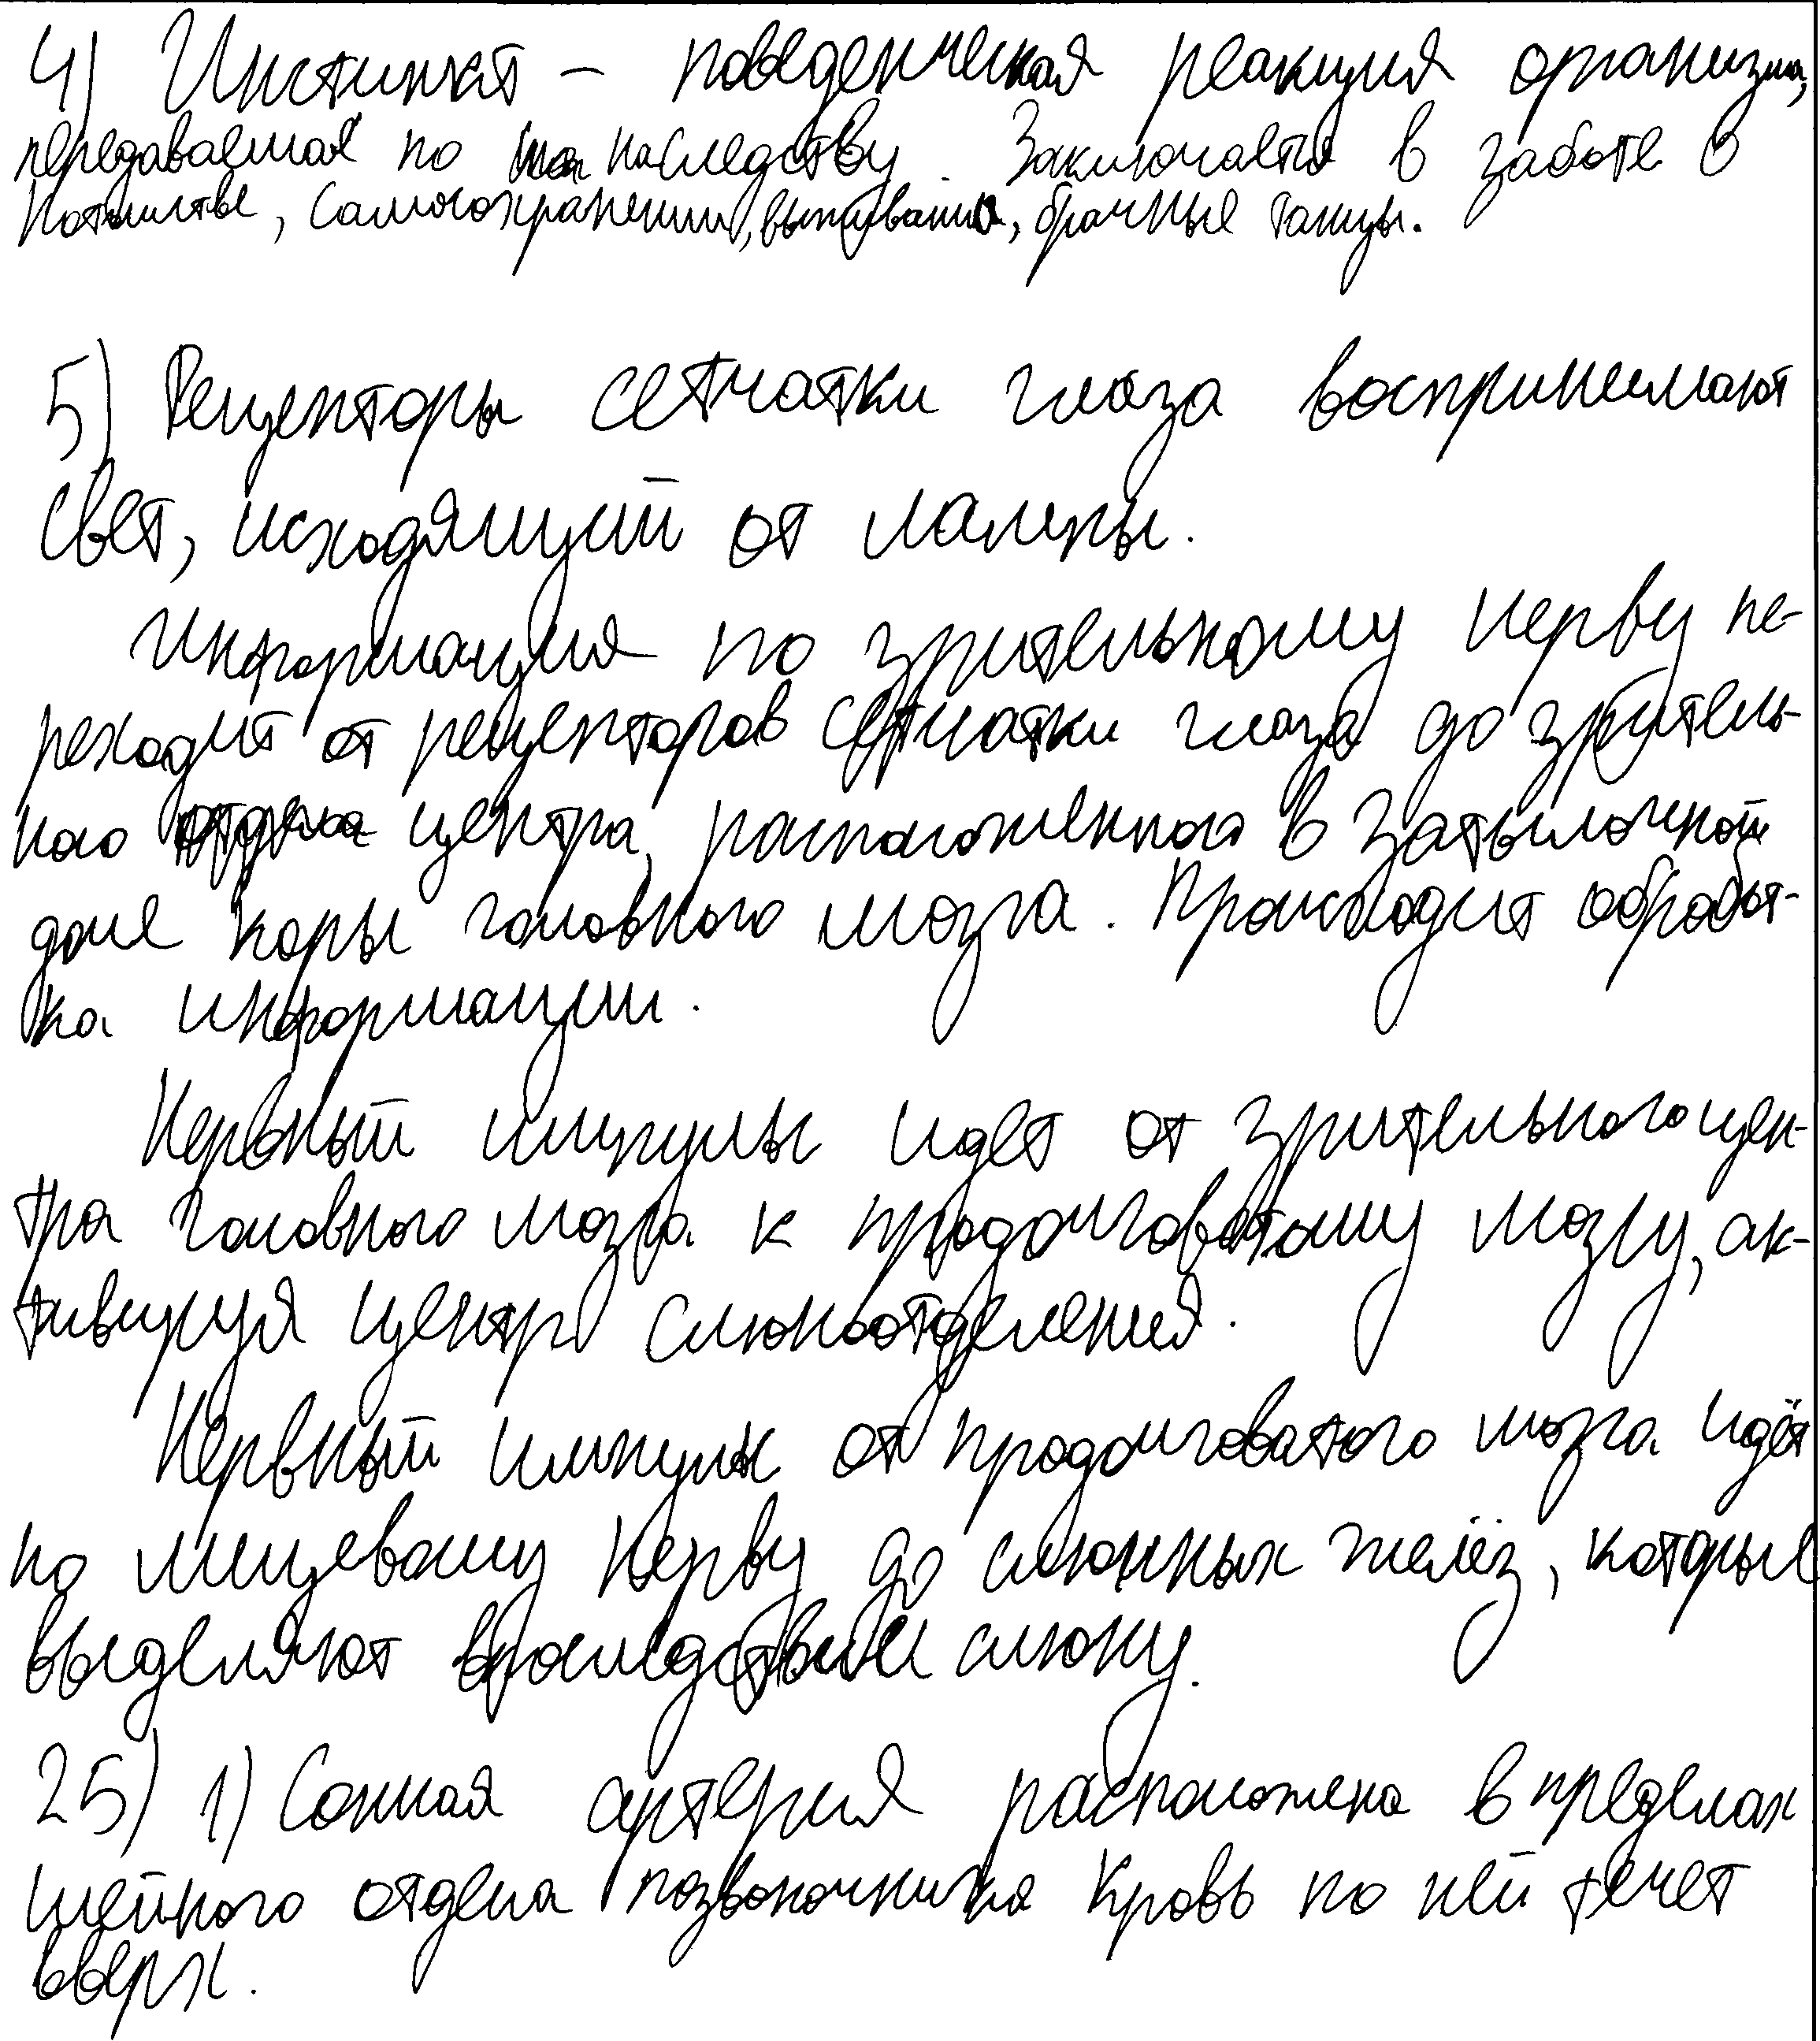 4) Инстинкт – поведенческая реакция организма,
передаваемая по наследству. Заключается в заботе о
потомстве, самосохранении, выживании, брачные танцы.
5) Рецепторы сетчатки глаза воспринимают
свет, исходящий от лампы.
Информация по зрительному нерву пе-
реходит от рецепторов сетчатки глаза до зритель-
ного центра, расположенного в затылочной
доле коры головного мозга. Происходит обработ-
ка информации.
Нервный импульс идет от зрительного цен-
тра головного мозга к продолговатому мозгу, ак-
тивируя центр слюноотделения.
Нервный импульс от продолговатого мозга идёт
по лицевому нерву до слюнных желёз, которые
выделяют впоследствии слюну.
25) 1) Сонная артерия расположена в пределах
шейного отдела позвоночника Кровь по ней течет
вверх.